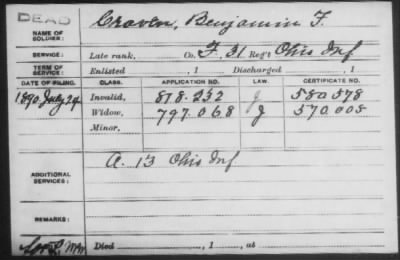 DEAD
NAME OF SOLDIER: Craven, Benjamin F.
SERVICE: Late rank, Co. F, 31 Reg't Ohio Inf
TERM OF SERVICE: Enlisted , 1 Discharged , 1
DATE OF FILING. CLASS. APPLICATION NO. LAW. CERTIFICATE NO.
1890 July 29 Invalid, 818.232 J 580.578
Widow, 797.068 J 570.005
Minor,
ADDITIONAL SERVICES: A. 13 Ohio Inf
REMARKS:
Died , 1 , at